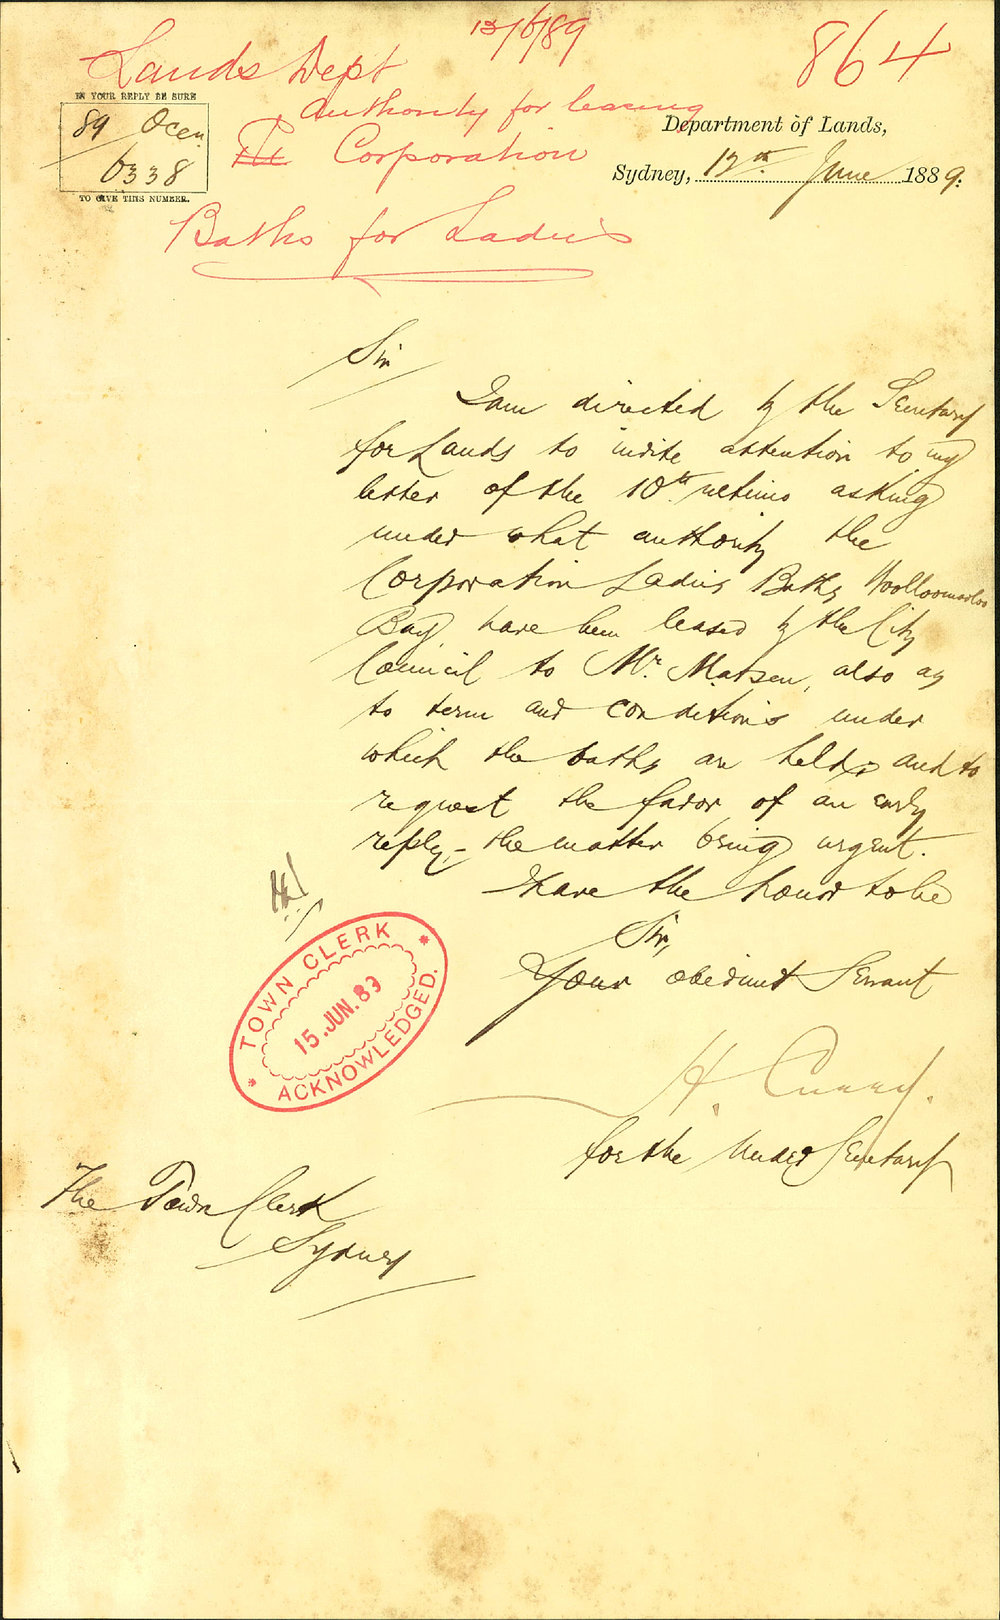 13/6/89
864
Lands Dept
authority for leasing
The Corporation
Baths for Ladies
IN YOUR REPLY BE SURE
89 Ocen
6338
TO GIVE THIS NUMBER.
Department of Lands,
Sydney, 12th June 1889.
Sir
I am directed by the Secretary
for Lands to invite attention to my
letter of the 10th ultimo asking
under what authority the
Corporation Ladies Baths Woolloomooloo
Bay have been leased by the City
Council to Mr. Matsen, also as
to term and conditions under
which the baths are held and to
request the favor of an early
reply, - the matter being urgent.
I have the honor to be
Sir,
Your obedient Servant
H.
for the Under Secretary
TOWN CLERK
15.JUN.89
ACKNOWLEDGED.
The Town Clerk
Sydney